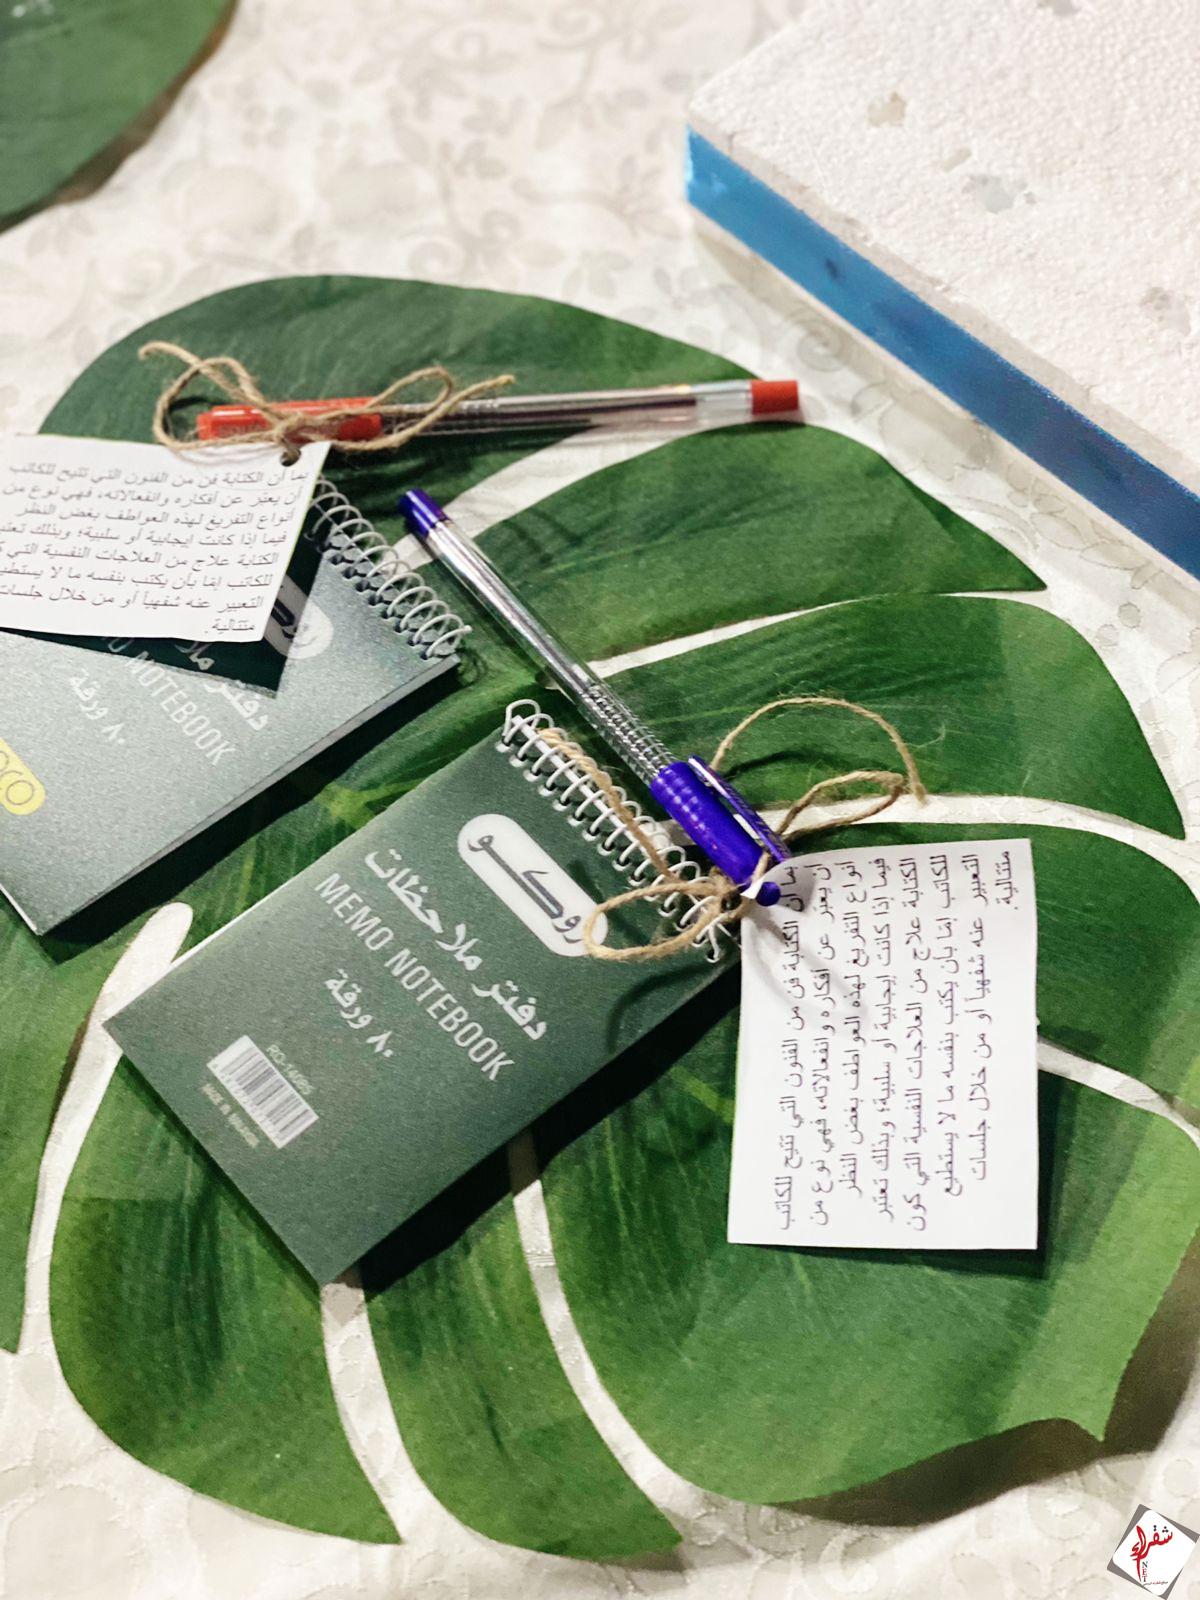 بما أن الكتابة فن من الفنون التي تتيح للكاتب
أن يعبّر عن أفكاره وانفعالاته، فهي نوع من
أنواع التفريغ لهذه العواطف بغض النظر
فيما إذا كانت إيجابية أو سلبية؛ وبذلك تعتبر
الكتابة علاج من العلاجات النفسية التي
للكاتب إمّا بأن يكتب بنفسه ما لا يستطيع
التعبير عنه شفهياً أو من خلال جلسات
متتالية.
دفتر
MEMO NOTEBOOK
٨٠ ورقة
روكو
دفتر ملاحظات
MEMO NOTEBOOK
٨٠ ورقة
بما أن الكتابة فن من الفنون التي تتيح للكاتب
أن يعبّر عن أفكاره وانفعالاته، فهي نوع من
أنواع التفريغ لهذه العواطف بغض النظر
فيما إذا كانت إيجابية أو سلبية؛ وبذلك تعتبر
الكتابة علاج من العلاجات النفسية التي كون
للكاتب إمّا بأن يكتب بنفسه ما لا يستطيع
التعبير عنه شفهياً أو من خلال جلسات
متتالية.
شقراء
NET